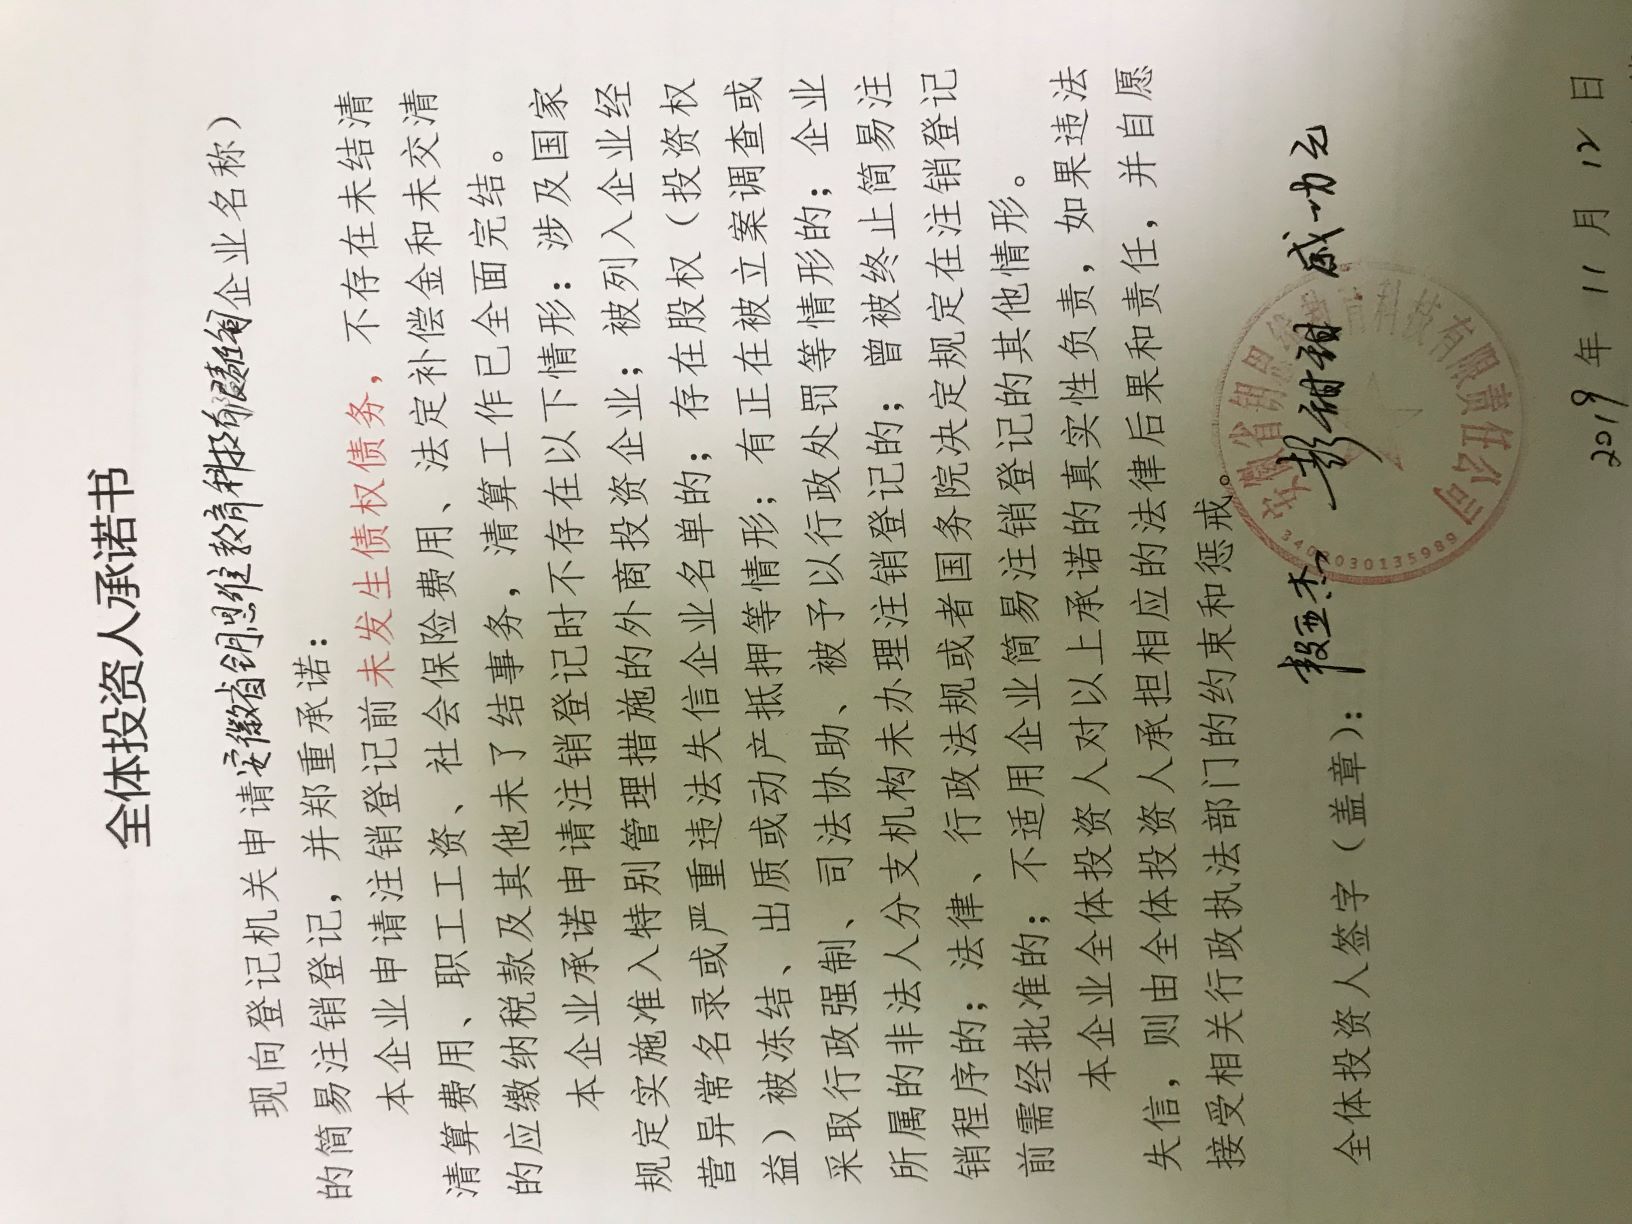 全体投资人承诺书
现向登记机关申请安徽省钥思维教育科技有限责任公司(企业名称)
的简易注销登记，并郑重承诺：
本企业申请注销登记前未发生债权债务，不存在未结清
清算费用、职工工资、社会保险费用、法定补偿金和未交清
的应缴纳税款及其他未了结事务，清算工作已全面完结。
本企业承诺申请注销登记时不存在以下情形：涉及国家
规定实施准入特别管理措施的外商投资企业；被列入企业经
营异常名录或严重违法失信企业名单的；存在股权（投资权
益）被冻结、出质或动产抵押等情形；有正在被立案调查或
采取行政强制、司法协助、被予以行政处罚等情形的；企业
所属的非法人分支机构未办理注销登记的；曾被终止简易注
销程序的；法律、行政法规或者国务院决定规定在注销登记
前需经批准的；不适用企业简易注销登记的其他情形。
本企业全体投资人对以上承诺的真实性负责，如果违法
失信，则由全体投资人承担相应的法律后果和责任，并自愿
接受相关行政执法部门的约束和惩戒。
全体投资人签字（盖章）： 彭甜甜
安徽省钥思维教育科技有限责任公司
2019 年 11 月 12 日